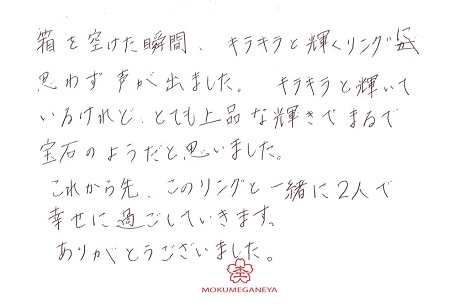 箱を空けた瞬間、キラキラと輝くリングに
思わず声が出ました。キラキラと輝いて
いるけれど、とても上品な輝きでまるで
宝石のようだと思いました。
これから先、このリングと一緒に2人で
幸せに過ごしていきます。
ありがとうございました。
MOKUMEGANEYA